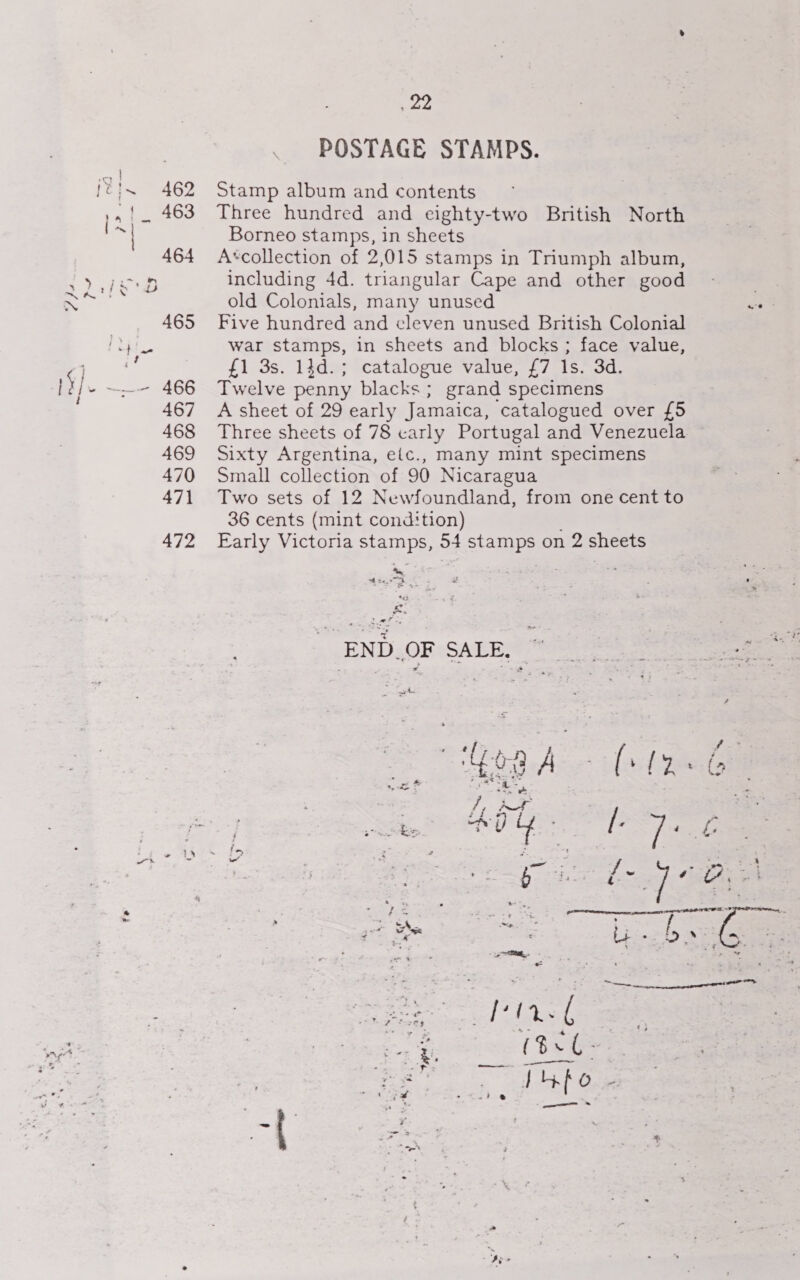 22
POSTAGE STAMPS.
462 Stamp album and contents
463 Three hundred and eighty-two British North
Borneo stamps, in sheets
464 A collection of 2,015 stamps in Triumph album,
including 4d. triangular Cape and other good
old Colonials, many unused
465 Five hundred and eleven unused British Colonial
war stamps, in sheets and blocks; face value,
£1 3s. 1½d.; catalogue value, £7 1s. 3d.
18/- 466 Twelve penny blacks; grand specimens
467 A sheet of 29 early Jamaica, catalogued over £5
468 Three sheets of 78 early Portugal and Venezuela
469 Sixty Argentina, etc., many mint specimens
470 Small collection of 90 Nicaragua
471 Two sets of 12 Newfoundland, from one cent to
36 cents (mint condition)
472 Early Victoria stamps, 54 stamps on 2 sheets
END OF SALE.
403 A - 1.12.6
404 1.7.6
5 1-7.0
4.6.6
1.12.6
18.6